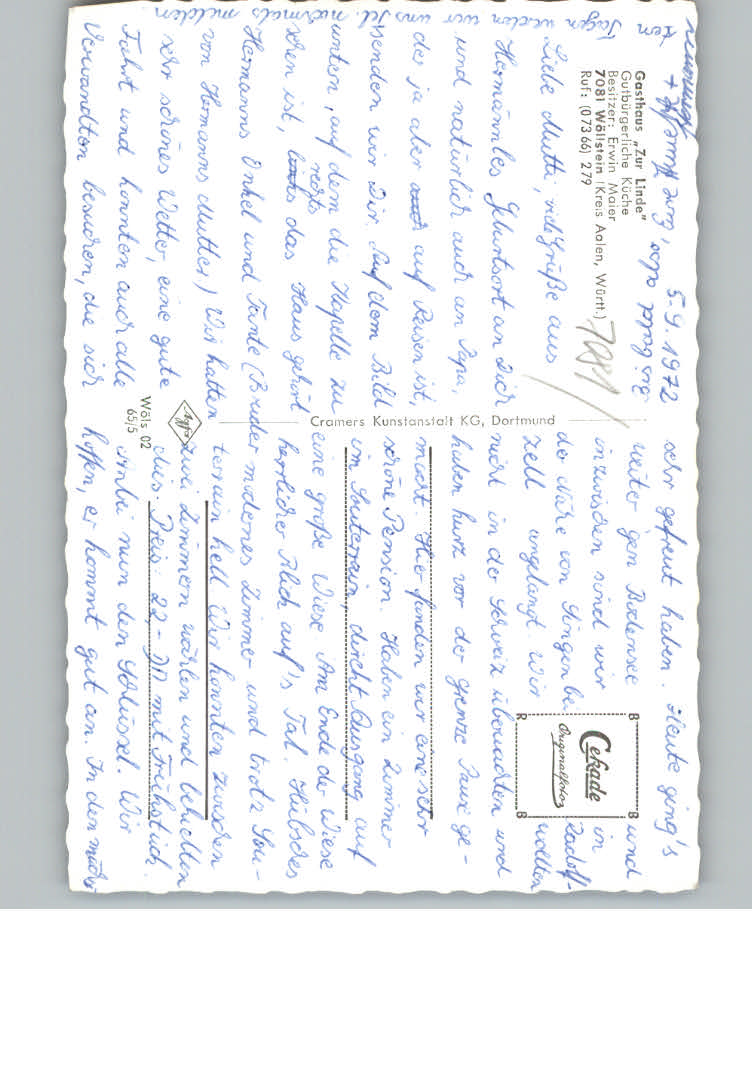 Gasthaus „Zur Linde"
Gutbürgerliche Küche
Besitzer: Erwin Maier
7081 Wöllstein (Kreis Aalen, Württ.)
Ruf: (07366) 279
7081
5.9.1972
Liebe Mutti, viele Grüße aus
Hermännles Geburtsort an Dich
und natürlich auch an Papa,
der ja aber auf Reisen ist,
senden wir Dir. Auf dem Bild
unten, auf dem die Kapelle zu
sehen ist, links rechts das Haus gehört
Hermanns Onkel und Tante (Bruder
von Hermanns Mutter) Wir hatten
sehr schönes Wetter, eine gute
Fahrt und konnten auch alle
Verwandten besuchen, die sich
sehr gefreut haben. Heute ging's
weiter gen Bodensee und
inzwischen sind wir in
der Nähe von Singen bei Radolf-
zell angelangt. Wir wollten
nicht in der Schweiz übernachten und
haben kurz vor der Grenze Pause ge-
macht. Hier fanden wir eine sehr
schöne Pension. Haben ein Zimmer
im Souterrain, direkt Ausgang auf
eine große Wiese. Am Ende der Wiese
herrlicher Blick auf's Tal. Hübsches
modernes Zimmer und trotz Sou-
terrain hell. Wir konnten zwischen
zwei Zimmern wählen und behielten
dies. Preis: 22,- DM mit Frühstück.
Anbei nun den Schlüssel. Wir
hoffen, er kommt gut an. In den näch-
sten Tagen werden wir uns tel. nochmals melden.
Bis bald, also,
Hermann
Cramers Kunstanstalt KG, Dortmund
Agfa
Wöls 02
65/5
B B
Cekade
Originalfoto
R B